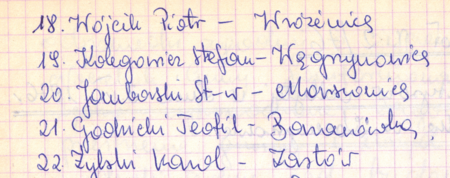 18. Wójcik Piotr – Wróżenice
19. Kolegowicz Stefan – Węgrzynowice
20. Jamborski St-w –
21. Godzicki Teofil – Bananówka,
22. Zylski Karol – Zastów